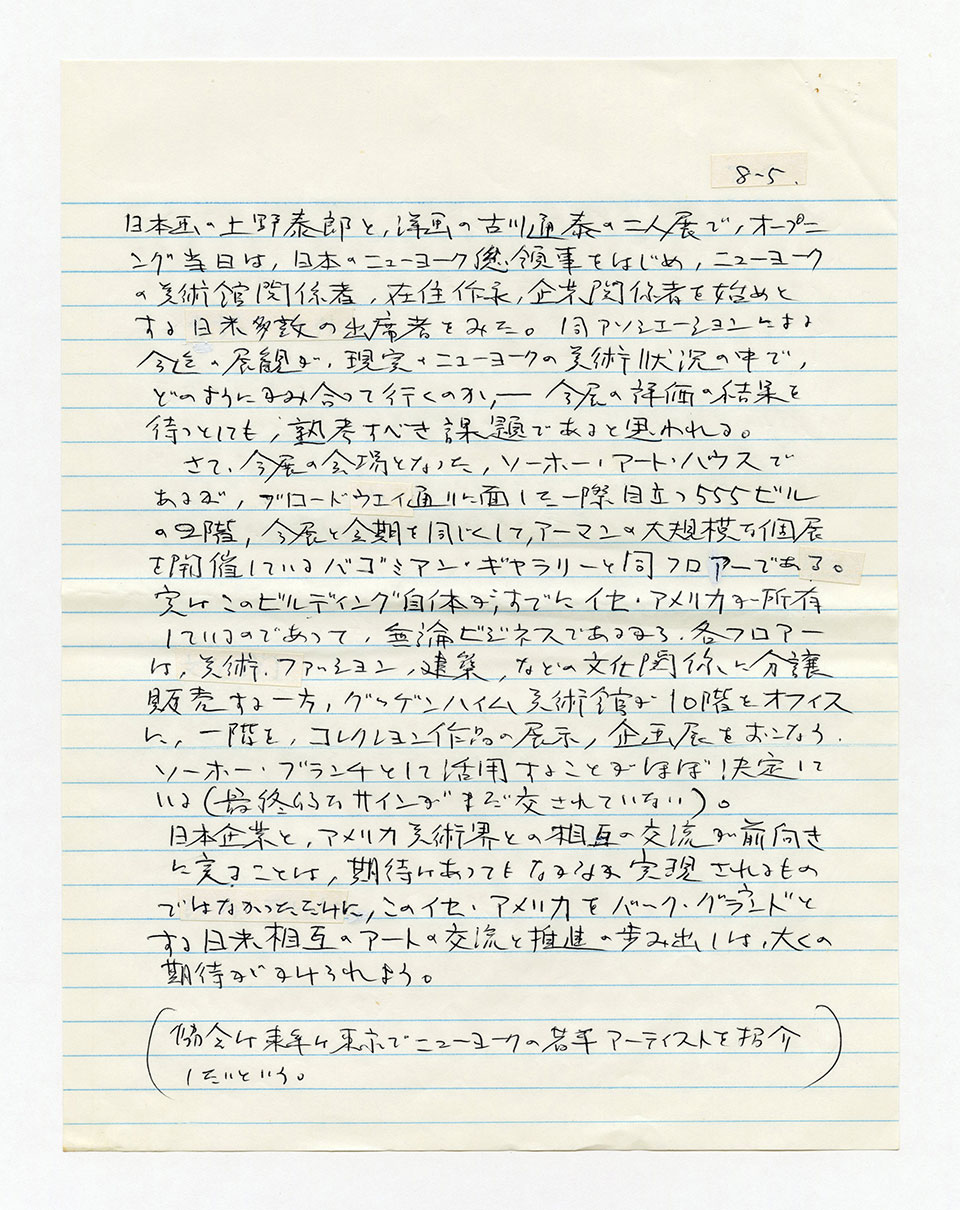 8-5.
日本画の上野泰郎と,洋画の古川通泰の二人展で,オープニ
ング当日は,日本のニューヨーク総領事をはじめ,ニューヨーク
の美術館関係者,在住作家,企業関係者を始めと
する日米多数の出席者をみた。同アソシエーションによる
今迄の展観が,現実のニューヨークの美術状況の中で,
どのようにかみ合って行くのか,— 今展の評価の結果を
待つとしても,熟考すべき課題であると思われる。
さて,今展の会場となった,ソーホー・アート・ハウスで
あるが,ブロードウェイ通りに面した一際目立つ555ビル
の2階,今展と会期を同じくして,アーマンの大規模な個展
を開催しているバゴミアン・ギャラリーと同フロアーである。
実はこのビルディング自体が,すでにイセ・アメリカが所有
しているのであって,無論ビジネスであるから,各フロアー
は,美術,ファッション,建築,などの文化関係に分譲
販売する一方,グッゲンハイム美術館が10階をオフィス
に,一階を,コレクション作品の展示,企画展をおこなう,
ソーホー・ブランチとして活用することがほぼ決定して
いる(最終的なサインがまだ交されていない)。
日本企業と,アメリカ美術界との相互の交流が前向き
に実ることは,期待はあってもなかなか実現されるもの
ではなかっただけに,このイセ・アメリカをバック・グラウンドと
する日米相互のアートの交流と推進の歩み出しは,大くの
期待がかけられよう。
(協会は来年は東京でニューヨークの若手アーティストを紹介
したいという。)